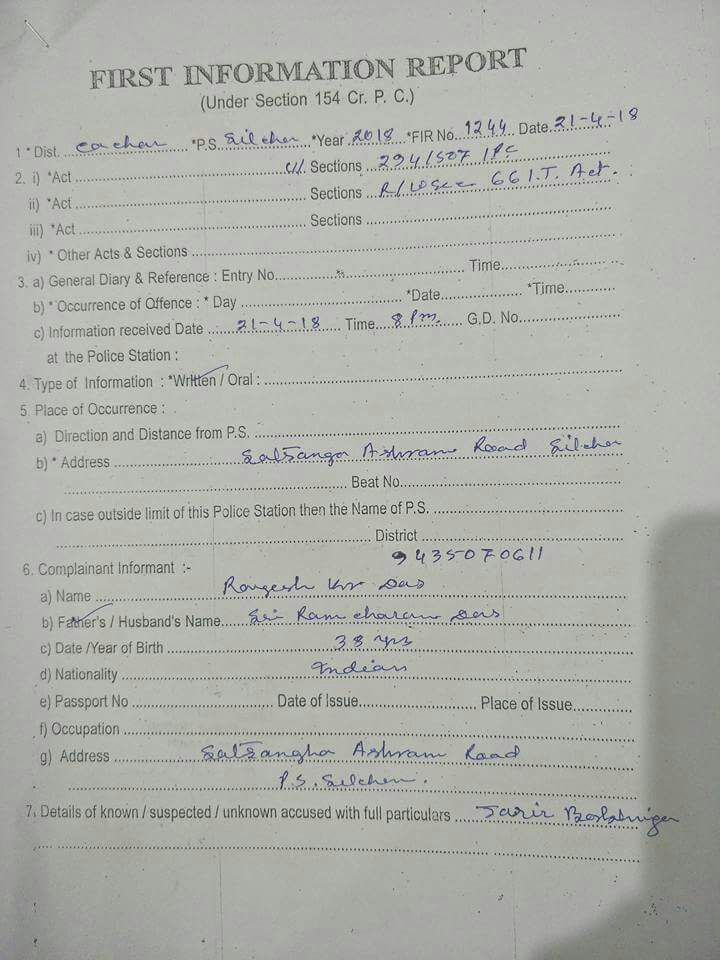 FIRST INFORMATION REPORT
(Under Section 154 Cr. P. C.)
1 * Dist. Cachar *P.S. Silcher *Year 2018 *FIR No. 1244 Date. 21-4-18
2. i) *Act U/. Sections 294/507 IPC
ii) *Act Sections R/W Sec 66 I.T. Act.
iii) *Act Sections
iv) * Other Acts & Sections
3. a) General Diary & Reference : Entry No. Time
b) * Occurrence of Offence : * Day *Date *Time
c) Information received Date 21-4-18 Time 8 Pm. G.D. No.
at the Police Station :
4. Type of Information : *Written / Oral :
5. Place of Occurrence :
a) Direction and Distance from P.S.
b) * Address Satsanga Ashram Road Silcher
Beat No.
c) In case outside limit of this Police Station then the Name of P.S.
District
9435070611
6. Complainant Informant :-
a) Name Kr Das
b) Father's / Husband's Name Sri Ram charan Das
c) Date /Year of Birth 38 yrs
d) Nationality Indian
e) Passport No Date of Issue Place of Issue
f) Occupation
g) Address Satsangha Ashram Road
P.S. Silcher.
7. Details of known / suspected / unknown accused with full particulars